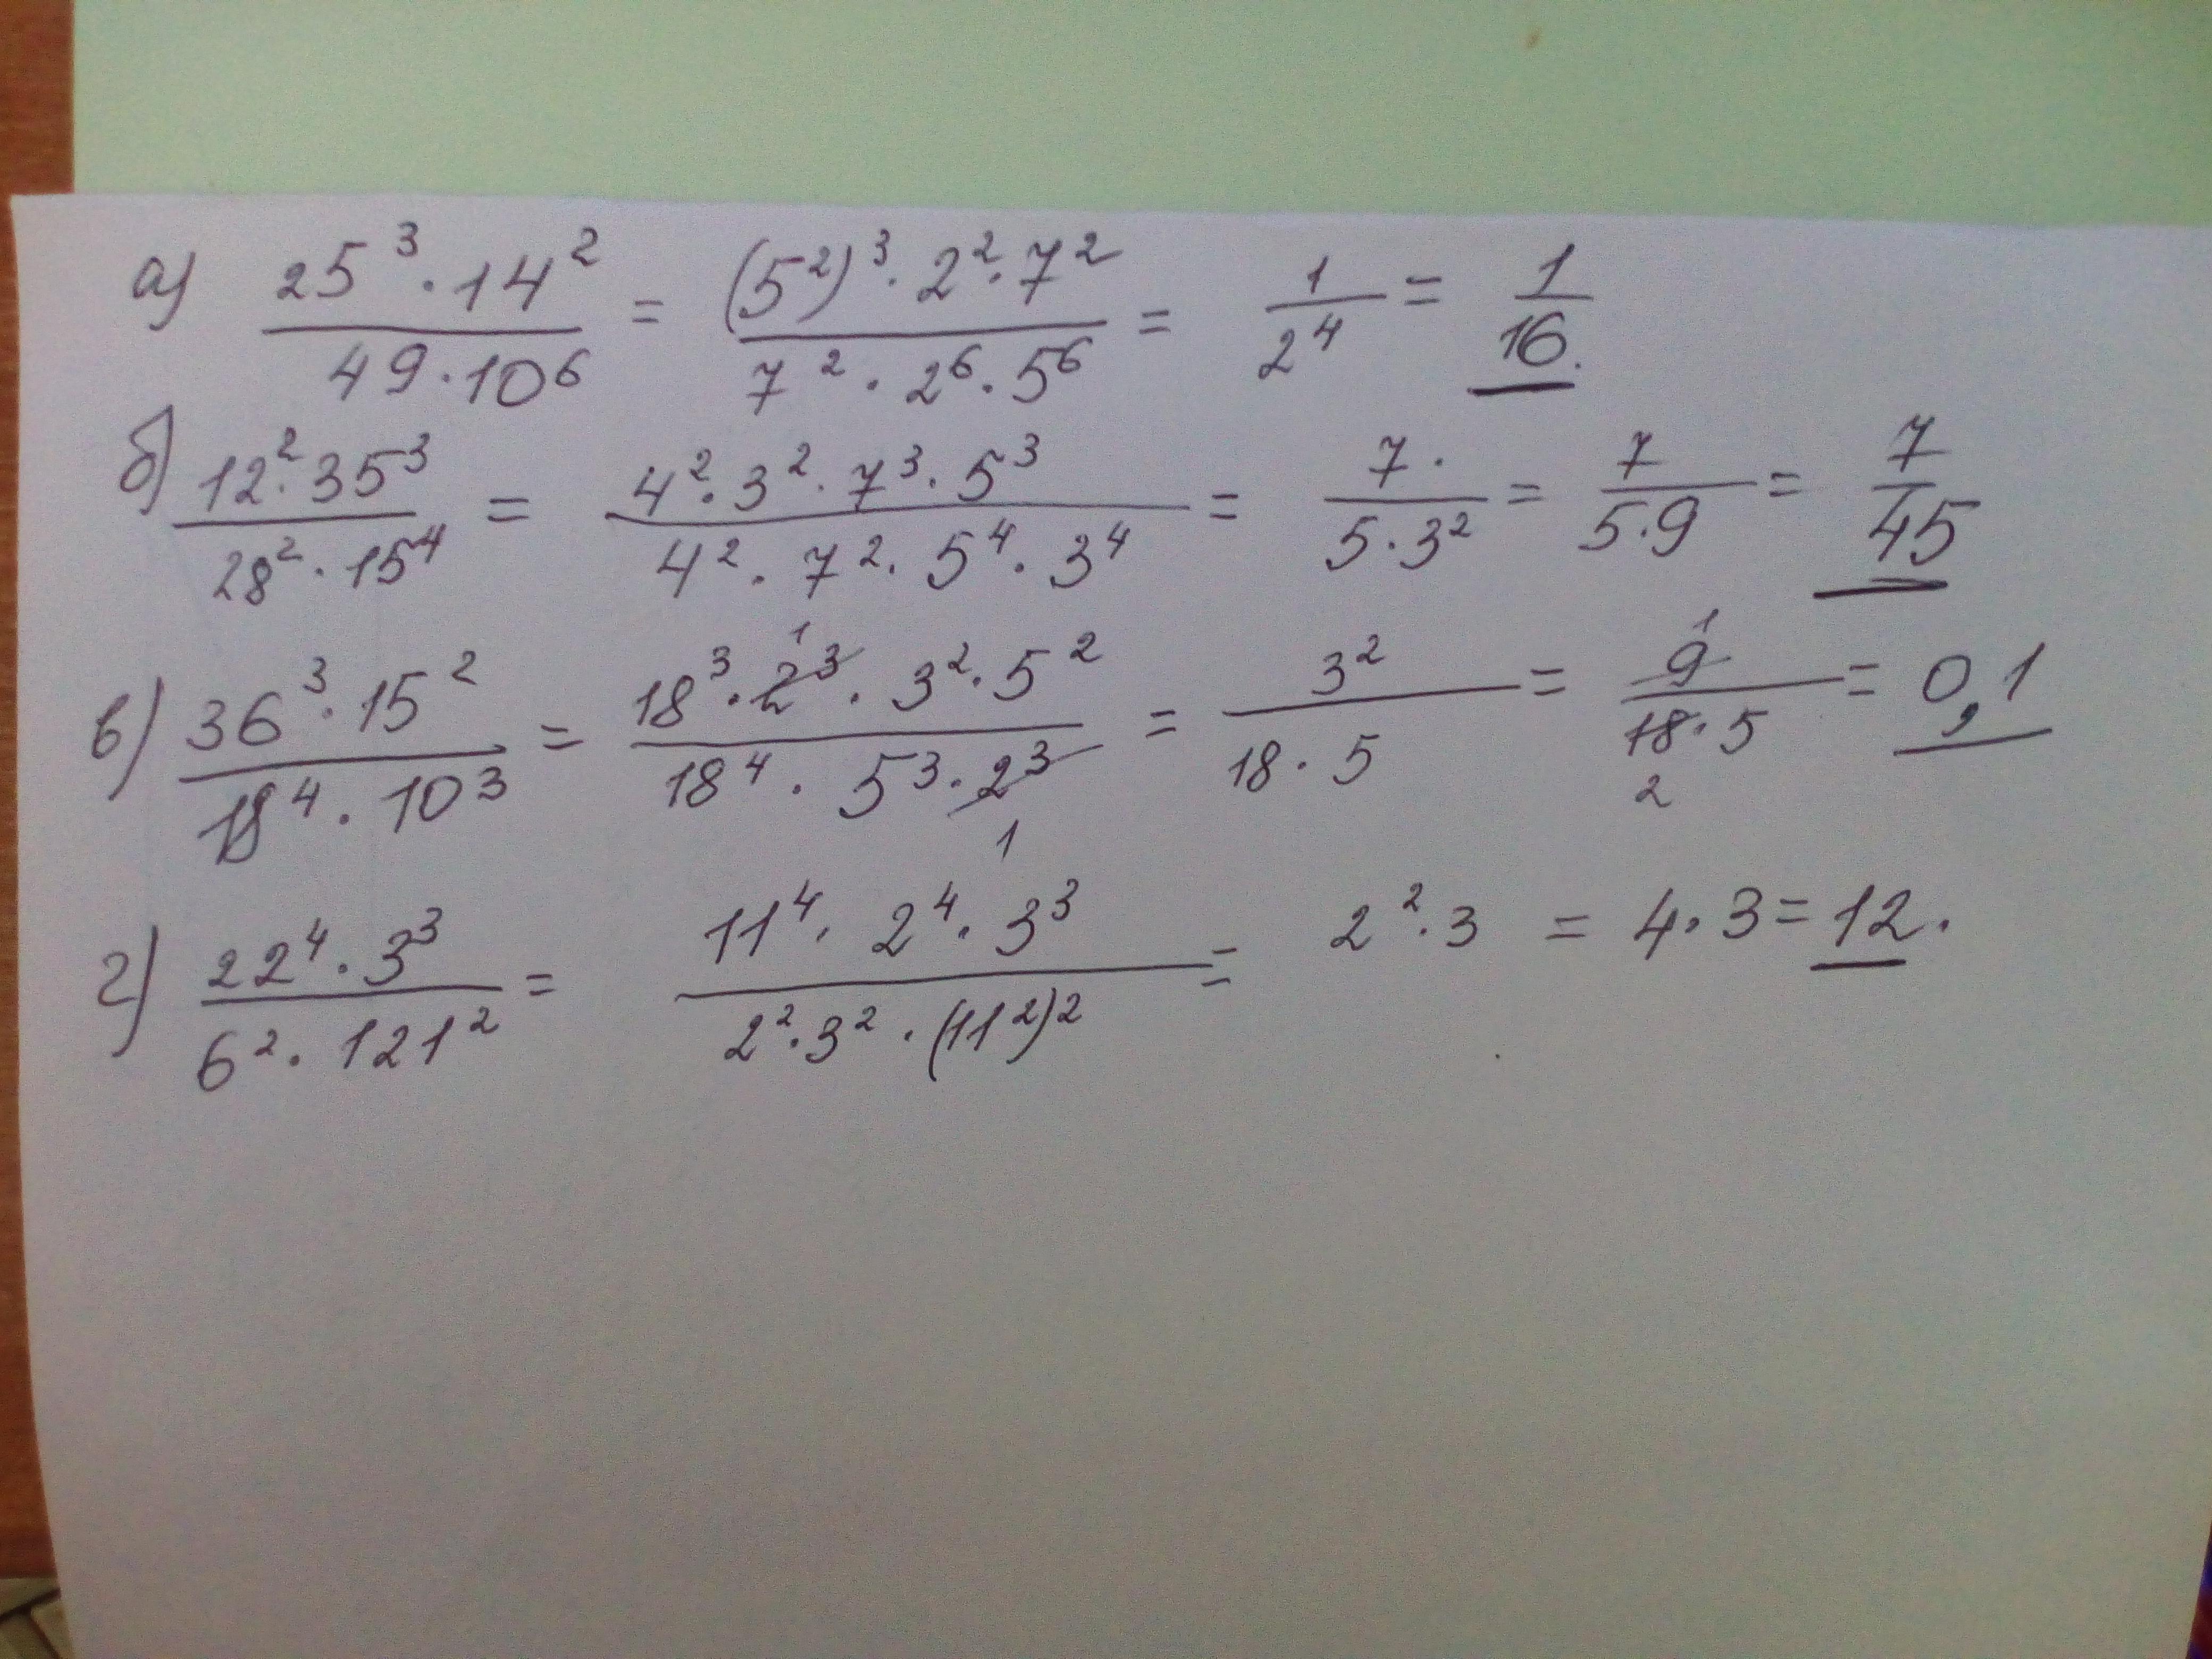 а) 25³·14² / 49·10⁶ = (5²)³·2²·7² / 7²·2⁶·5⁶ = 1 / 2⁴ = 1 / 16.
б) 12²·35³ / 28²·15⁴ = 4²·3²·7³·5³ / 4²·7²·5⁴·3⁴ = 7· / 5·3² = 7 / 5·9 = 7 / 45
в) 36³·15² / 18⁴·10³ = 18³·2³·3²·5² / 18⁴·5³·2³ = 3² / 18·5 = 9 / 18·5 = 0,1
г) 22⁴·3³ / 6²·121² = 11⁴·2⁴·3³ / 2²·3²·(11²)² = 2²·3 = 4·3 = 12.